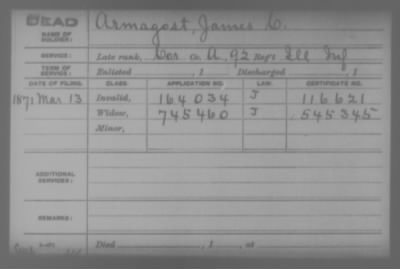 DEAD Armagost, James C.
NAME OF SOLDIER:
SERVICE: Late rank, Cor Co. A, 92 Reg't Ill Inf
TERM OF SERVICE: Enlisted , 1 Discharged , 1
DATE OF FILING. CLASS. APPLICATION NO. LAW. CERTIFICATE NO.
1871 Mar 13 Invalid, 164034 J 116621
Widow, 745460 J 545345
Minor,
ADDITIONAL SERVICES:
REMARKS:
Died , 1 , at